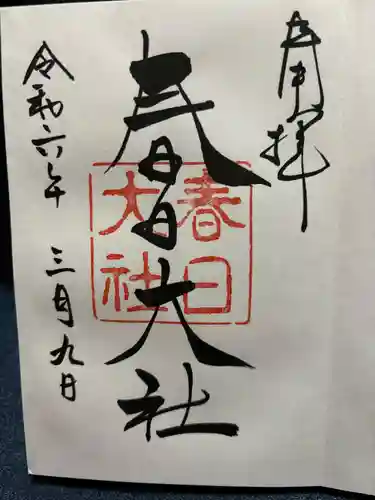 奉拝
春日大社
春日
大社
令和六年 三月九日